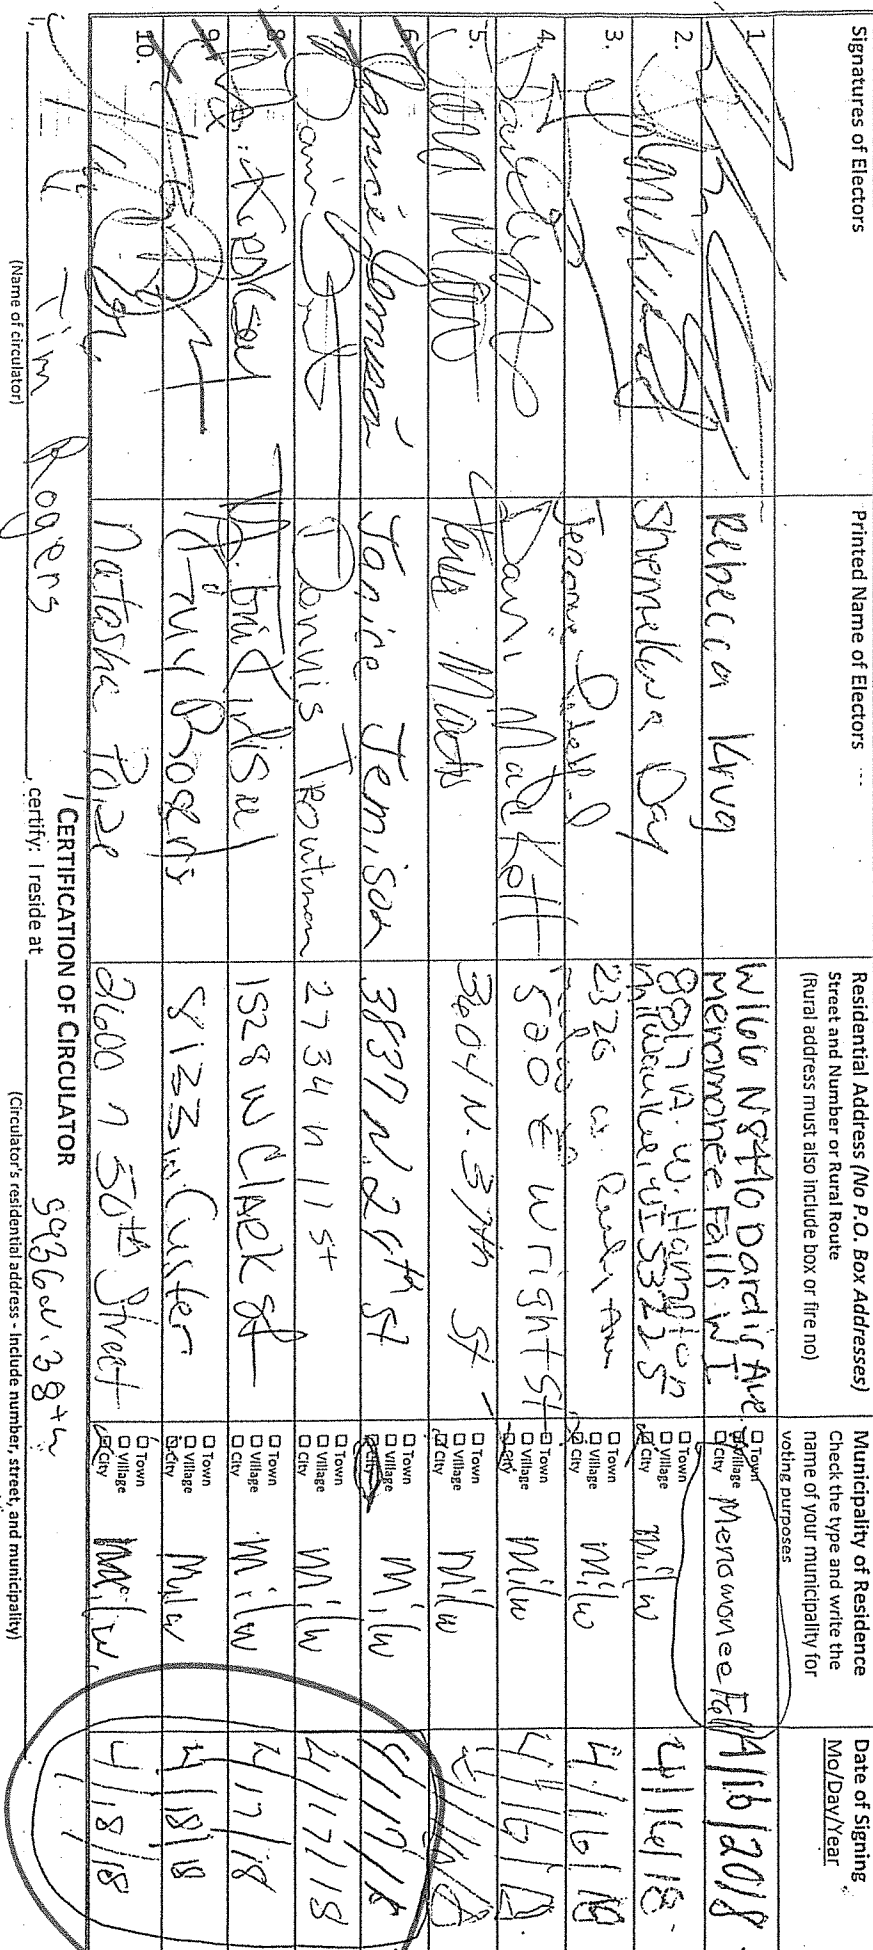 Signatures of Electors
Printed Name of Electors
Residential Address (No P.O. Box Addresses)
Street and Number or Rural Route
(Rural address must also include box or fire no)
Municipality of Residence
Check the type and write the
name of your municipality for
voting purposes
Date of Signing
Mo/Day/Year
1.
Rebecca Krug
W166 N8440 Dardis Ave
Menomonee Falls WI
Town
Village
City
Menomonee Fall
4/16/2018
2.
Shemekwa Day
8817 A. W. Hampton
Milwaukee, WI 53225
Town
Village
City
Milw
4/16/18
3.
Jerome
2326 W.
Town
Village
City
Milw
4/16/18
4.
520 E Wright St
Town
Village
City
Milw
4/16/18
5.
3604 N. 37th St
Town
Village
City
Milw
6.
Janice Jemison
Janice Jemison
3837 N. 20th St
Town
Village
City
Milw
4/17/18
7.
Dennis Troutman
2734 N 11 St
Town
Village
City
Milw
4/17/18
8.
1528 W Clark St
Town
Village
City
Milw
4/17/18
9.
Rogers
8133 W. Custer
Town
Village
City
Milw
4/18/18
10.
Natasha
2600 N 50th Street
Town
Village
City
Milw.
4/18/18
CERTIFICATION OF CIRCULATOR
I, Tim Rogers, certify: I reside at 5936 N. 38th
(Name of circulator)
(Circulator's residential address - Include number, street, and municipality)